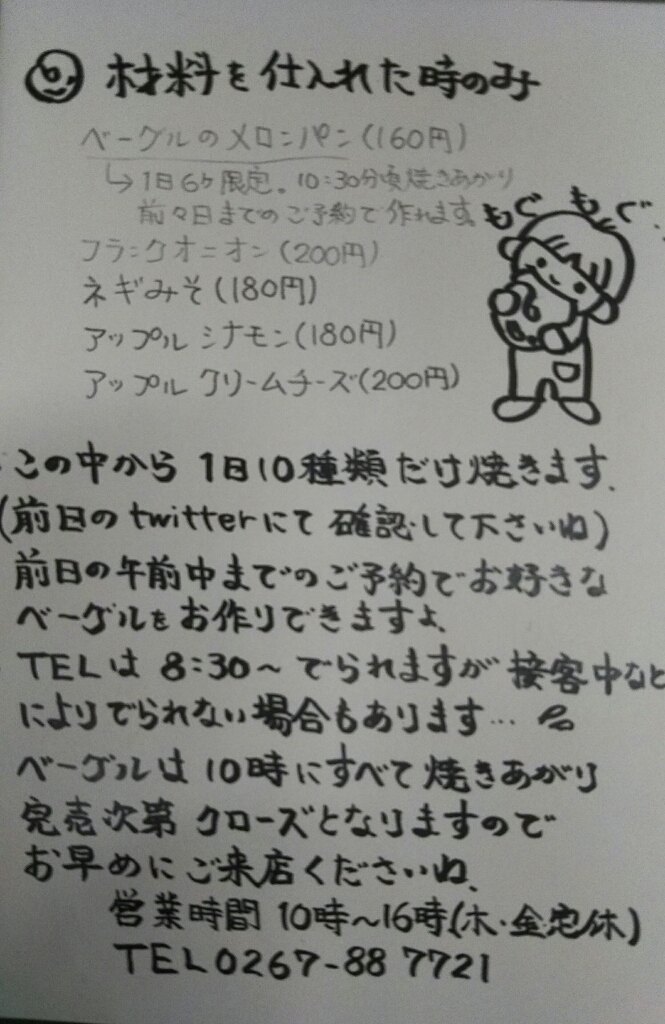 材料を仕入れた時のみ
ベーグルのメロンパン(160円)
↳1日6ヶ限定。10:30分頃焼きあがり
前々日までのご予約で作れます。
もぐもぐ…
フランクオニオン(200円)
ネギみそ(180円)
アップルシナモン(180円)
アップルクリームチーズ(200円)
この中から1日10種類だけ焼きます。
(前日のtwitterにて確認して下さいね)
前日の午前中までのご予約でお好きな
ベーグルをお作りできますよ。
TELは8:30〜でられますが接客中など
によりでられない場合もあります…
ベーグルは10時にすべて焼きあがり
完売次第クローズとなりますので
お早めにご来店くださいね。
営業時間10時〜16時(木・金定休)
TEL0267-88 7721